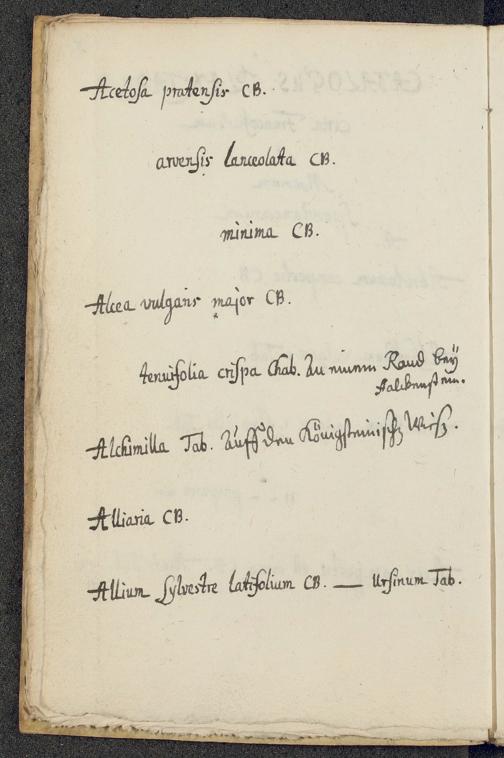 Acetosa pratensis CB.
arvensis lanceolata CB.
minima CB.
Alcea vulgaris major CB.
tenuifolia crispa Chab. An einem Rand beÿ
Falckenstein.
Alchimilla Tab. Auff den Königsteinisch Wiß.
Alliaria CB.
Allium sylvestre latifolium CB. — Ursinum Tab.